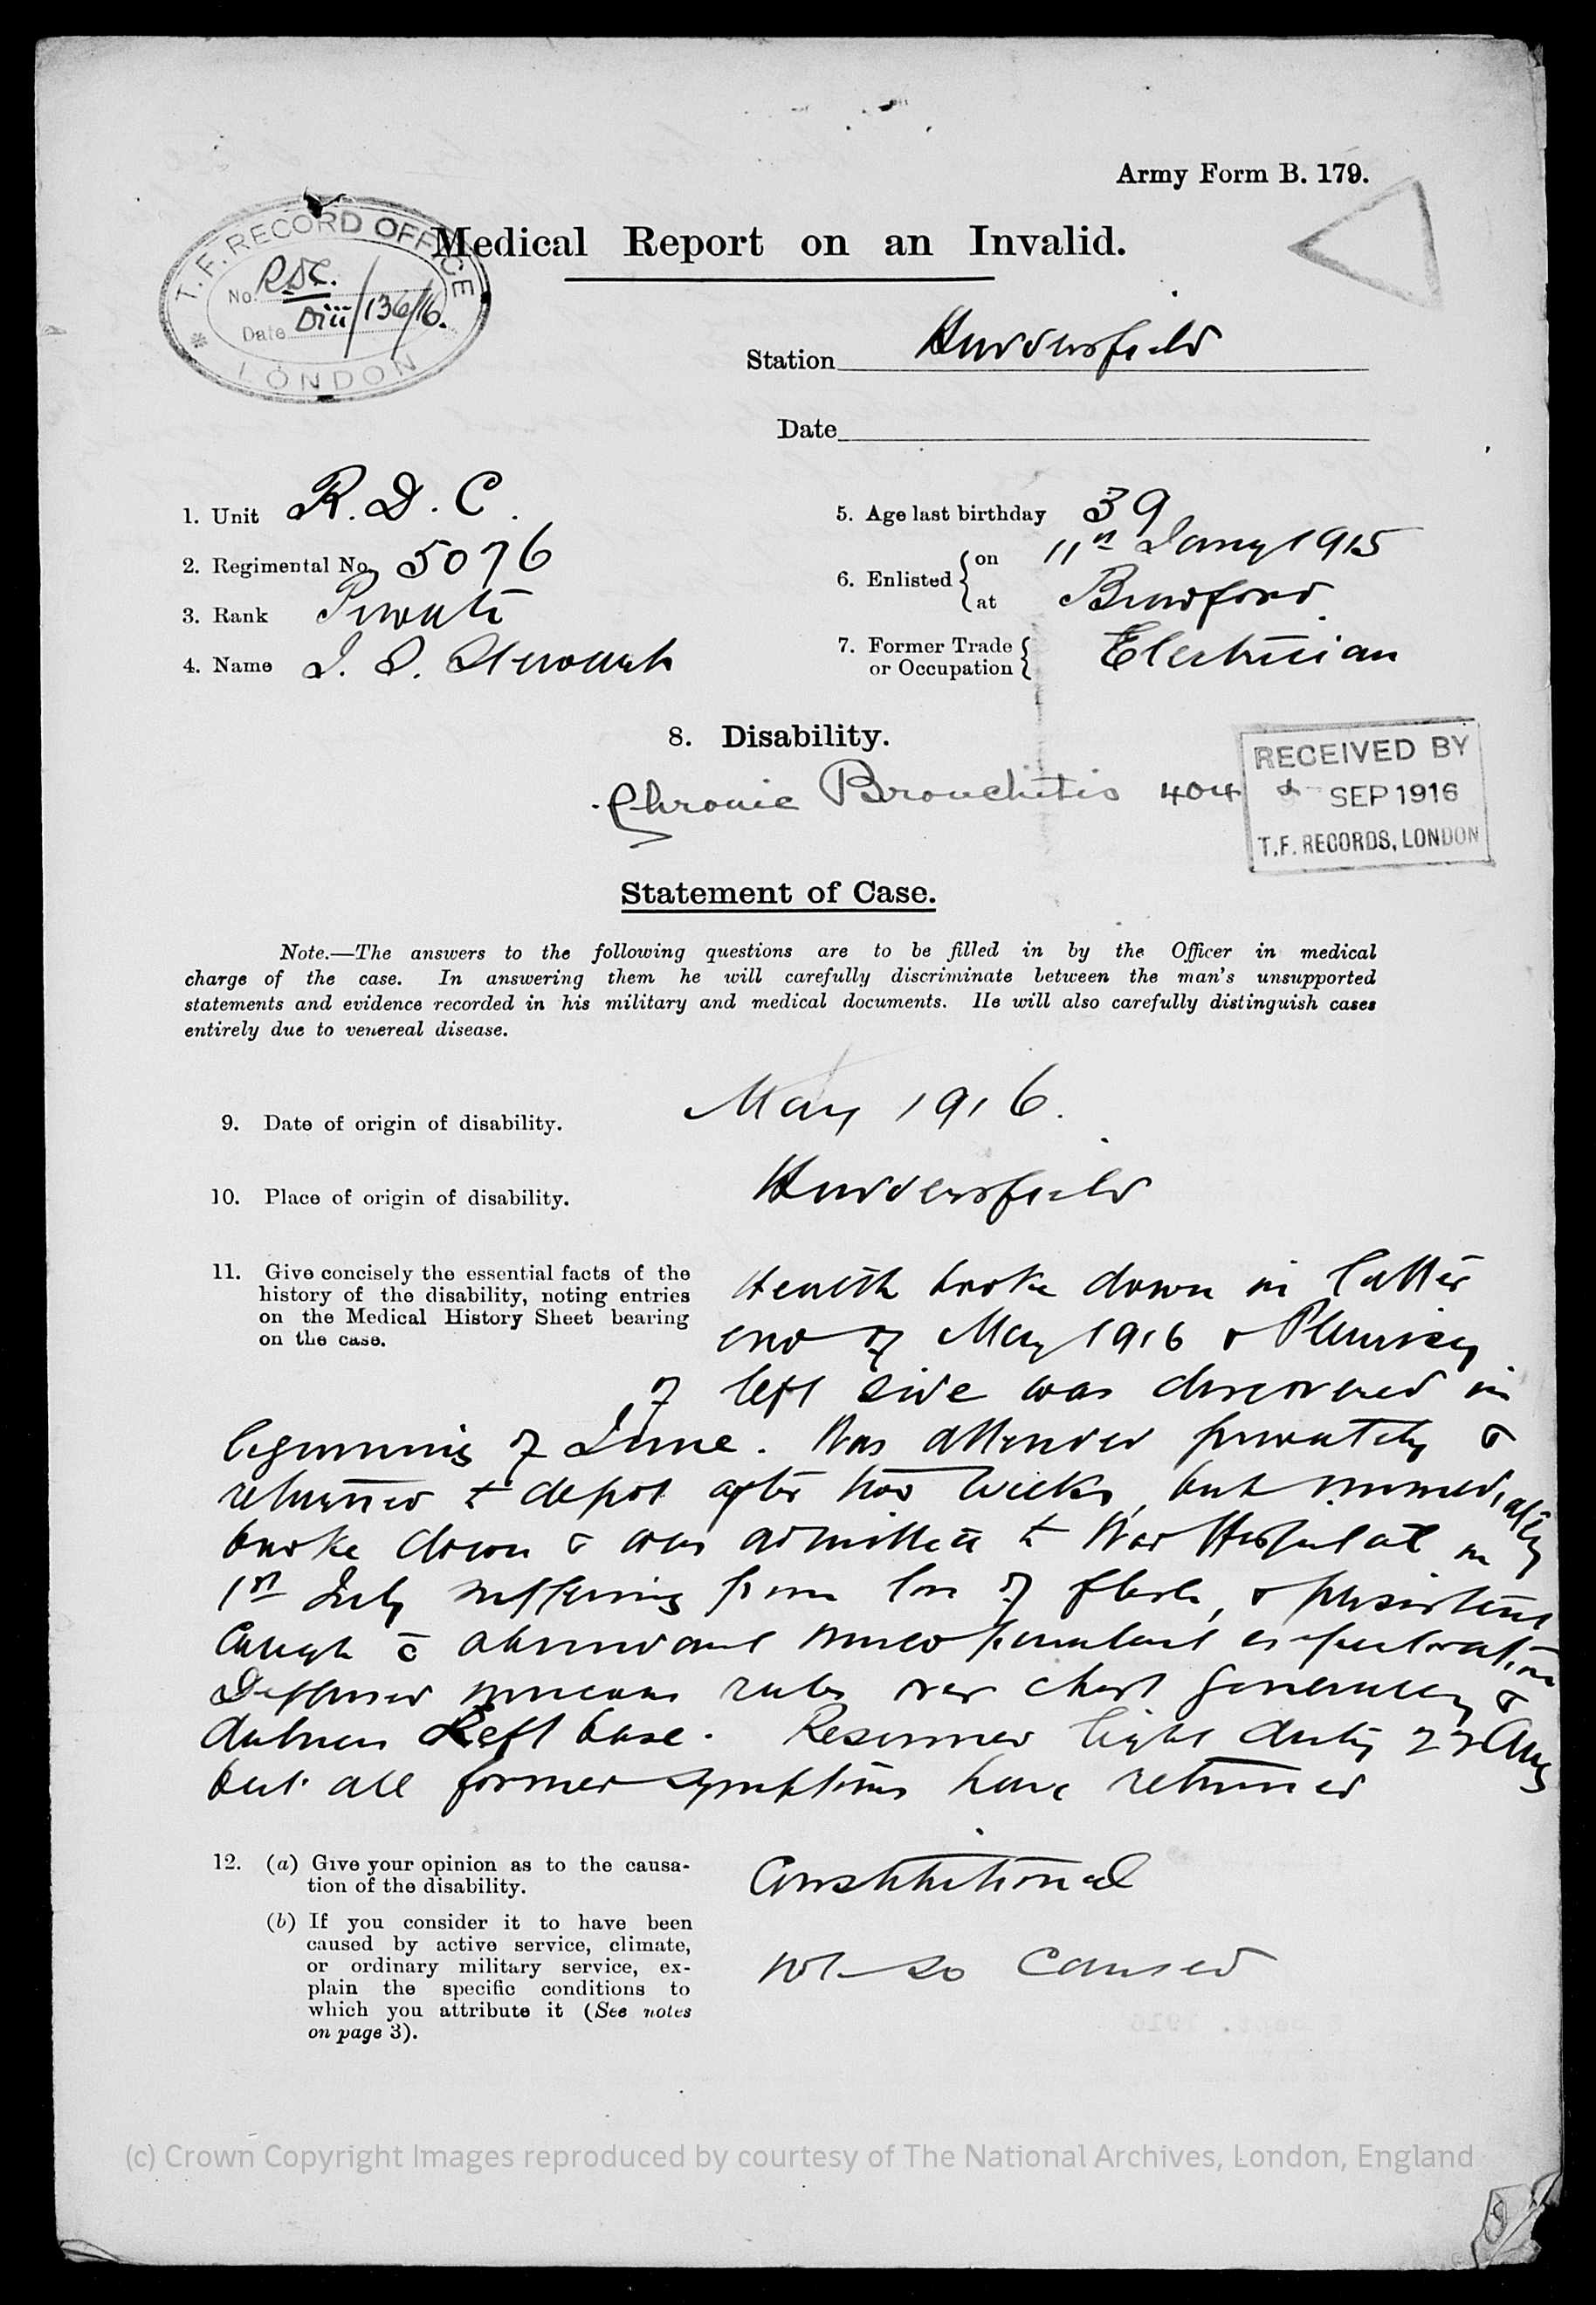 Army Form B. 179.
T.F. RECORD OFFICE
Medical Report on an Invalid.
No. R.D.C.
Date Diii/136/16.
LONDON
Station Huddersfield
Date
1. Unit R.D.C.
2. Regimental No. 5076
3. Rank Private
4. Name J. S. Stewart
5. Age last birthday 39
6. Enlisted { on 11th Jany 1915
at Bradford
7. Former Trade or Occupation { Electrician
8. Disability.
Chronic Bronchitis 404
RECEIVED BY
SEP 1916
T.F. RECORDS, LONDON
Statement of Case.
Note.—The answers to the following questions are to be filled in by the Officer in medical
charge of the case. In answering them he will carefully discriminate between the man's unsupported
statements and evidence recorded in his military and medical documents. He will also carefully distinguish cases
entirely due to venereal disease.
9. Date of origin of disability. May 1916.
10. Place of origin of disability. Huddersfield
11. Give concisely the essential facts of the
history of the disability, noting entries
on the Medical History Sheet bearing
on the case.
Health broke down in latter
end of May 1916 & Pleurisy
of left side was discovered in
beginning of June. Was attended privately &
returned to depot after two weeks, but immediately
broke down & was admitted to War Hospital on
1st July suffering from loss of flesh, & persistent
cough c̄ abundant mucopurulent expectoration
Diffused mucous rales over chest generally &
dulness Left base. Resumed light duty 22 Aug
but all former symptoms have returned
12. (a) Give your opinion as to the causa-
tion of the disability.
Constitutional
(b) If you consider it to have been
caused by active service, climate,
or ordinary military service, ex-
plain the specific conditions to
which you attribute it (See notes
on page 3).
not so caused
(c) Crown Copyright Images reproduced by courtesy of The National Archives, London, England